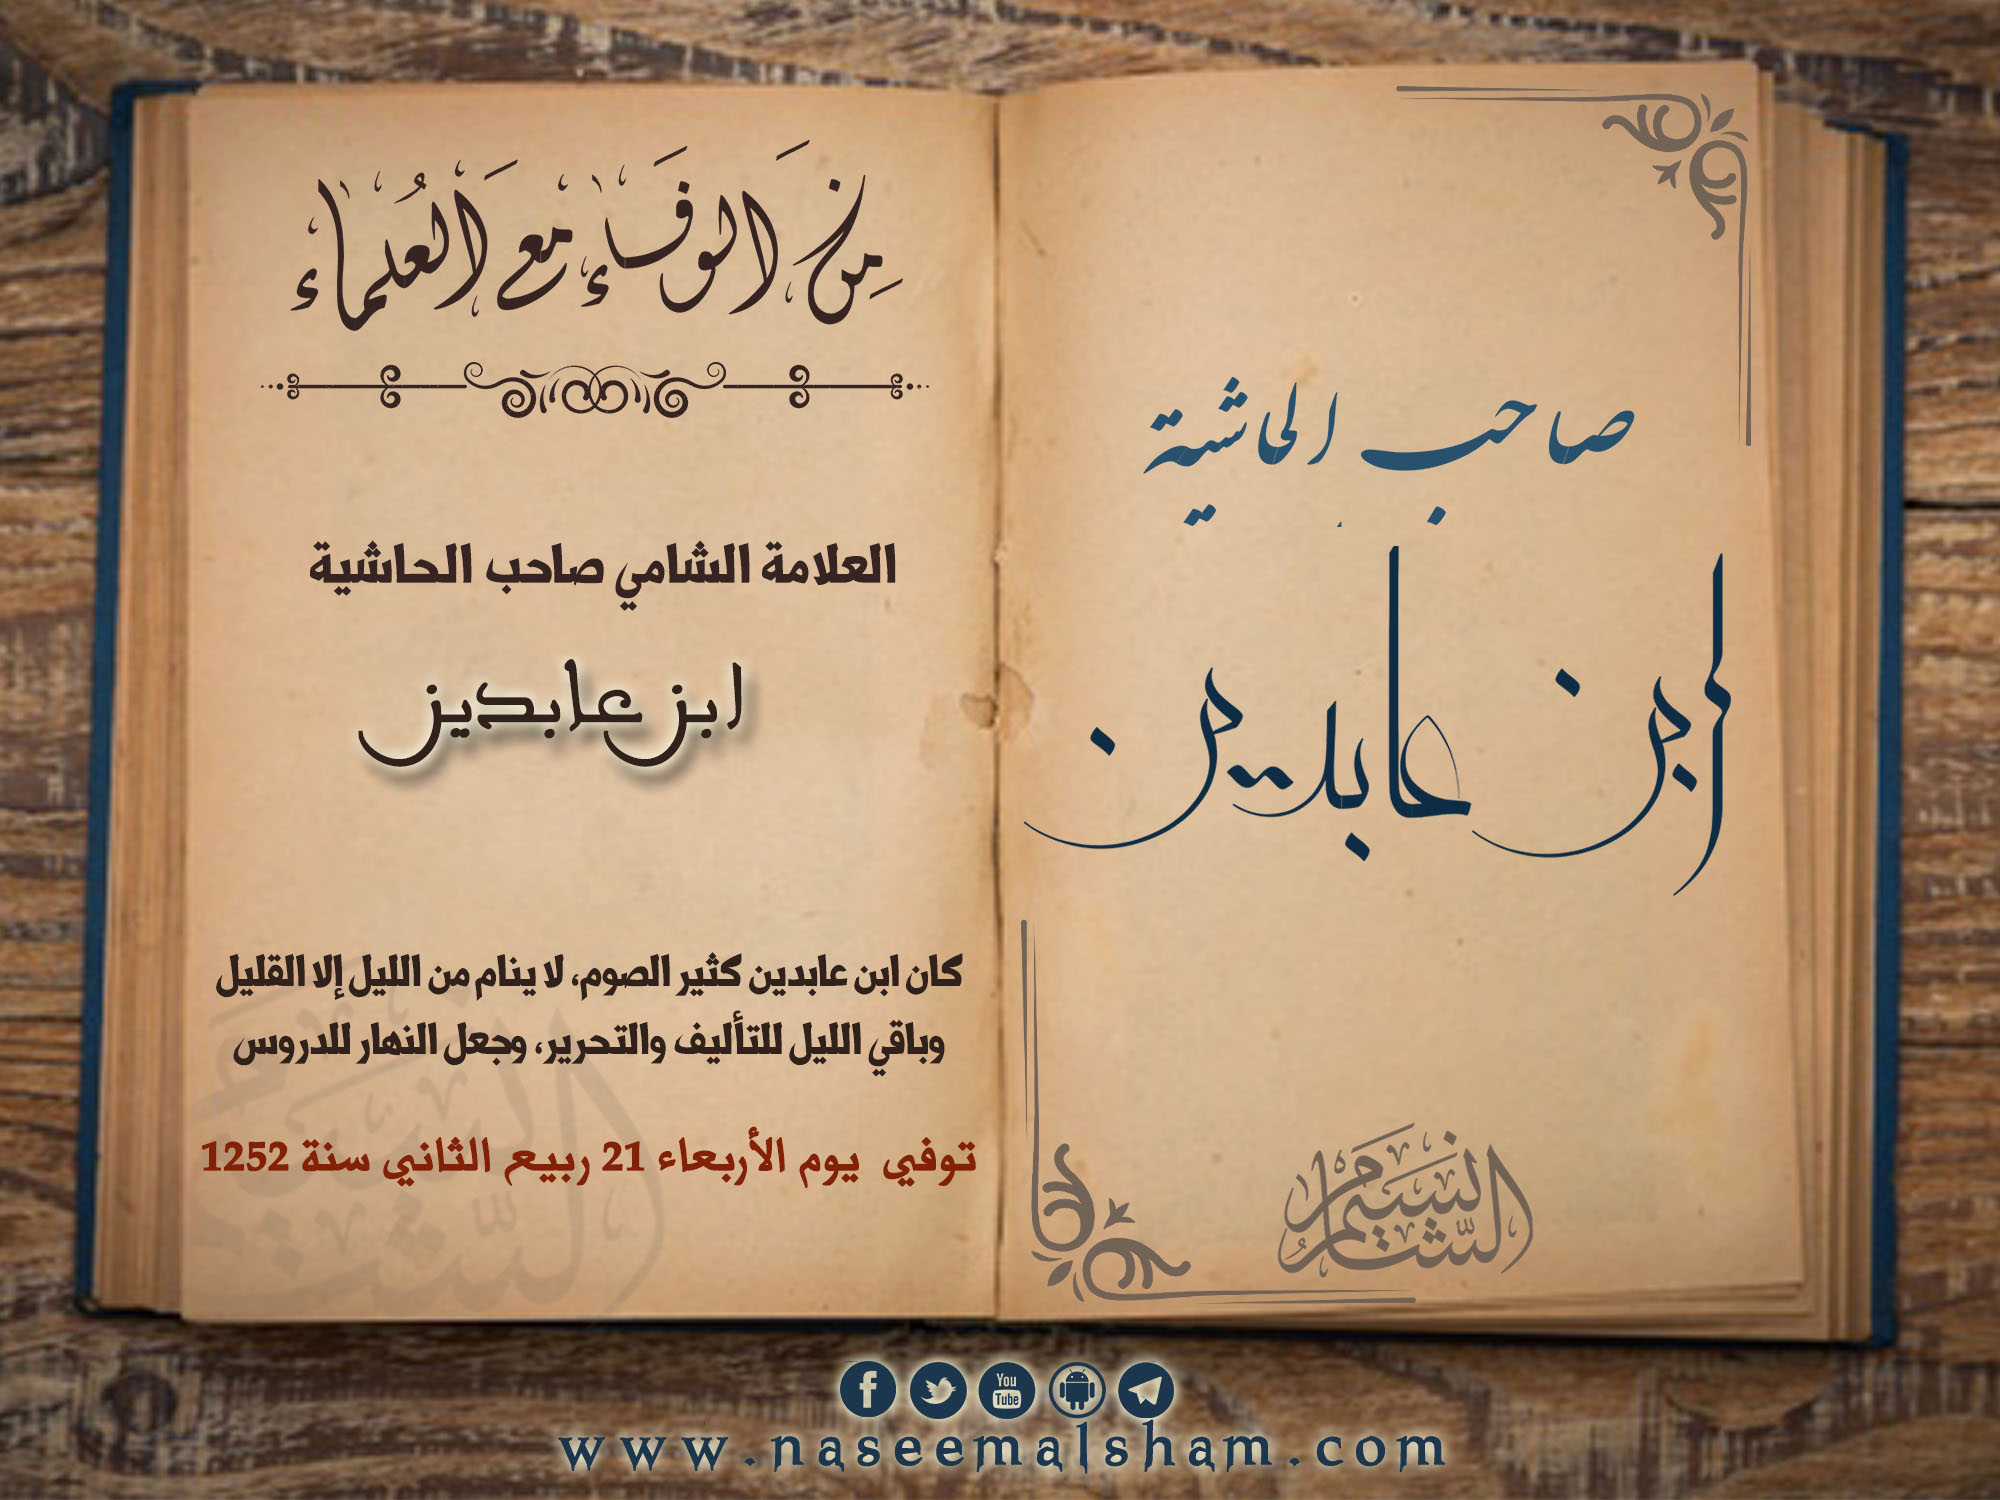 صاحب الحاشية
ابن عابدين
نسيم الشام
من الوفاء مع العلماء
العلامة الشامي صاحب الحاشية
ابن عابدين
كان ابن عابدين كثير الصوم، لا ينام من الليل إلا القليل
وباقي الليل للتأليف والتحرير، وجعل النهار للدروس
توفي يوم الأربعاء 21 ربيع الثاني سنة 1252
You Tube
www.naseemalsham.com